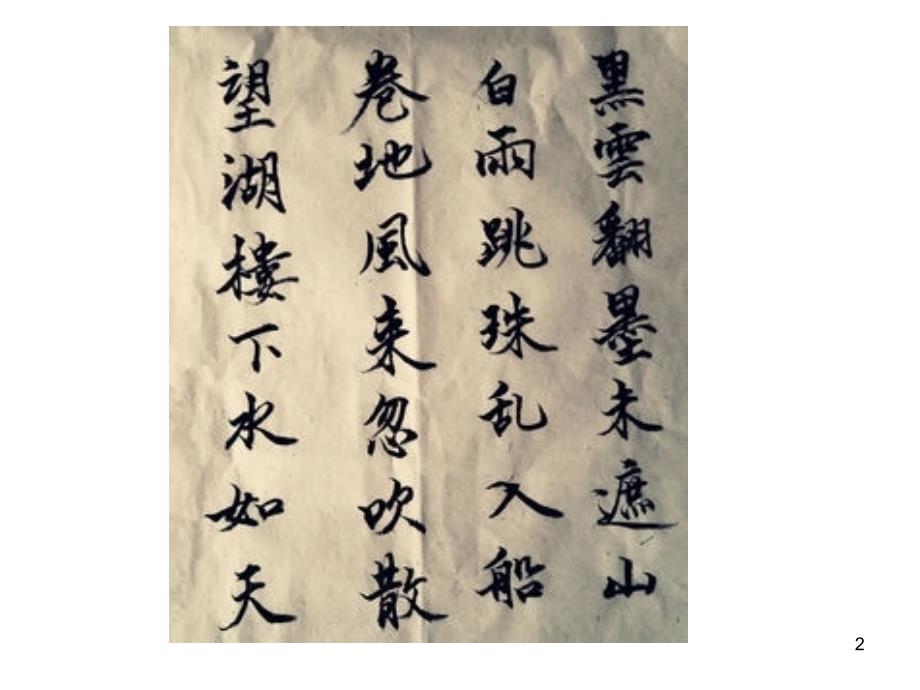 黑雲翻墨未遮山
白雨跳珠乱入船
卷地風来忽吹散
望湖樓下水如天
2